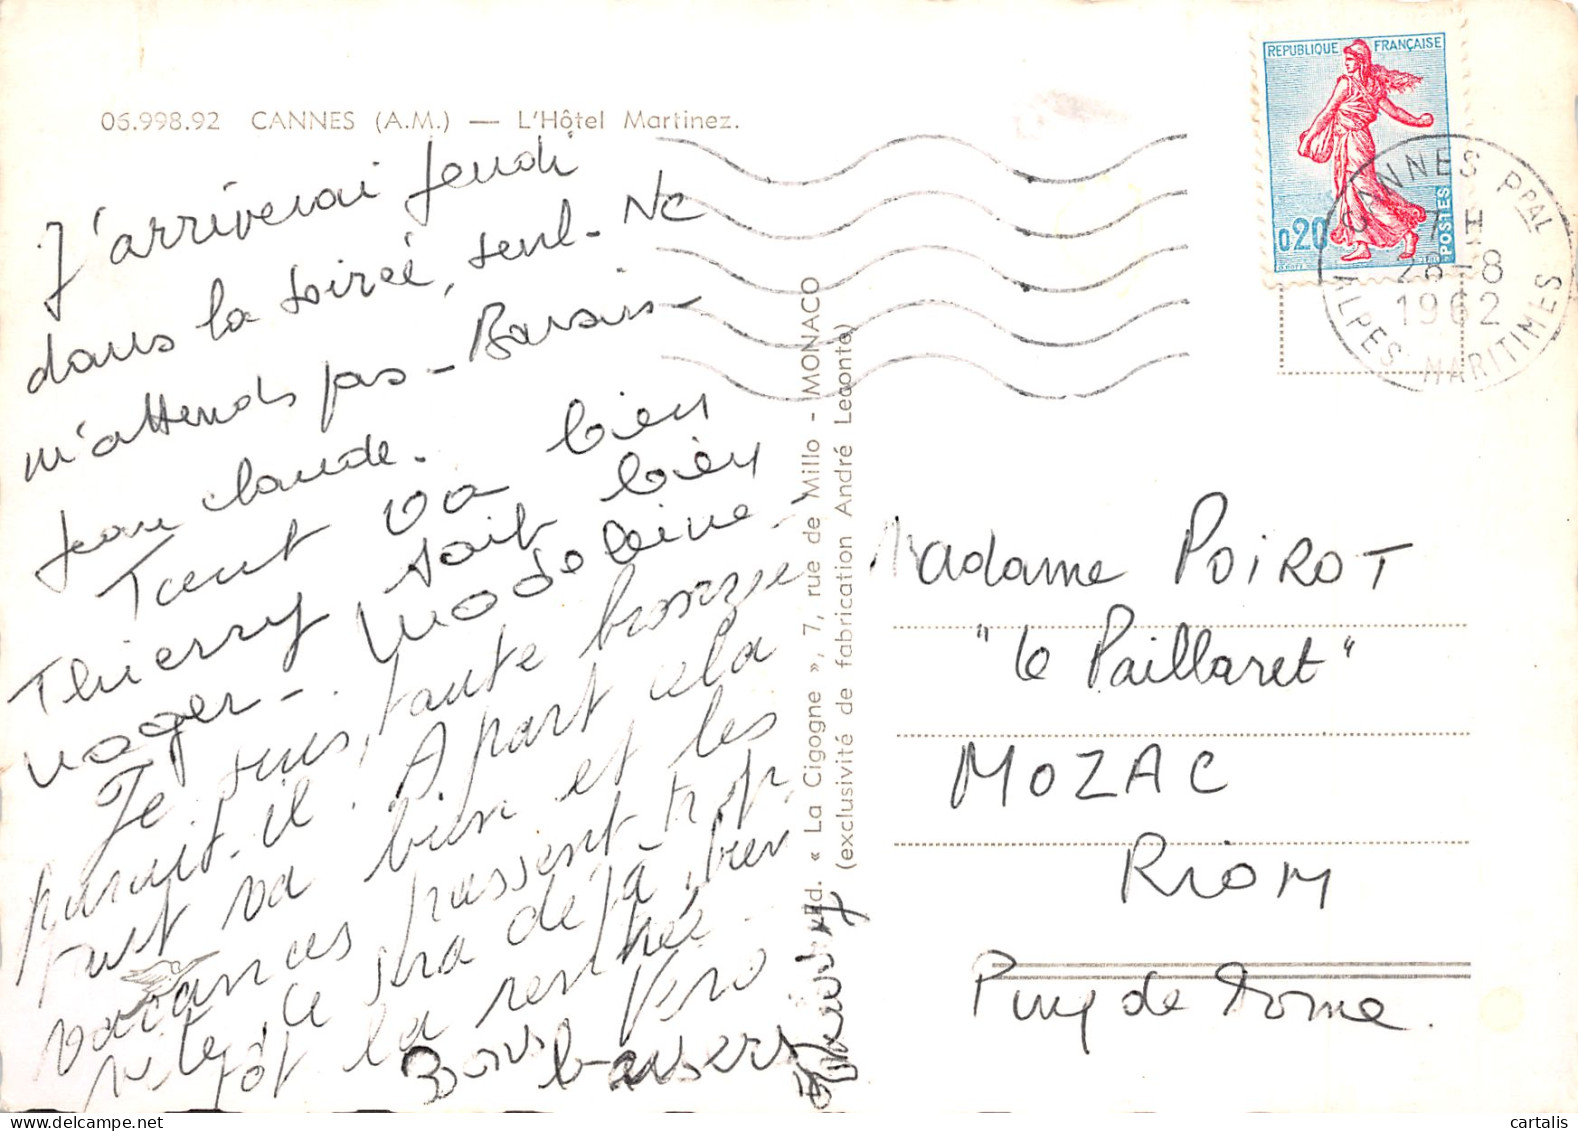 06.998.92 CANNES (A.M.) — L'Hôtel Martinez.
J'arriverai jeudi
dans la soirée, seul - Ne
m'attends pas - Baisers -
Jean Claude.
Tout va bien
Thierry sait bien
nager - Madeleine -
Je suis, toute bronzée
parait-il. A part cela
tout va bien et les
vacances passent trop
vite, ce sera déjà bien
tôt la rentrée.
Véro
Bons baisers
Thierry
Ed. « La Cigogne », 7, rue de Millo - MONACO
(exclusivité de fabrication André Leconte)
REPUBLIQUE FRANÇAISE
0,20
POSTES
CANNES PPAL
7 H
28-8
1962
ALPES MARITIMES
Madame POIROT
"le Paillaret"
MOZAC
RIOM
Puy de Dome.
cartalis
www.delcampe.net